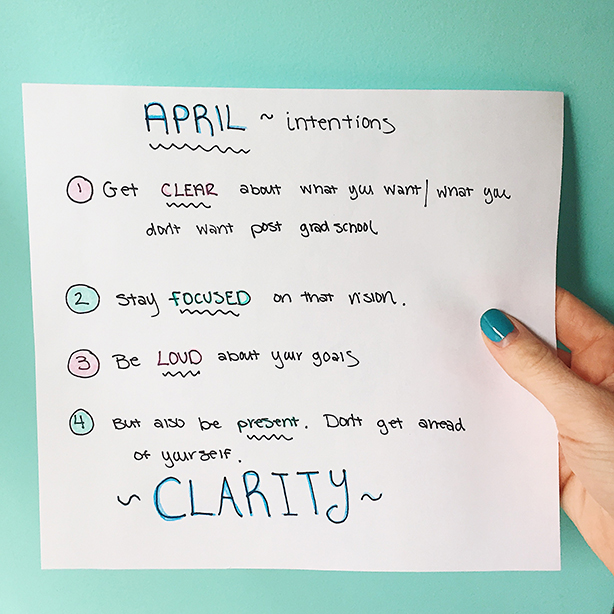 APRIL ~ intentions
1 Get CLEAR about what you want/what you
don't want post grad school
2 Stay FOCUSED on that vision.
3 Be LOUD about your goals
4 But also be present. Don't get ahead
of yourself.
~ CLARITY ~